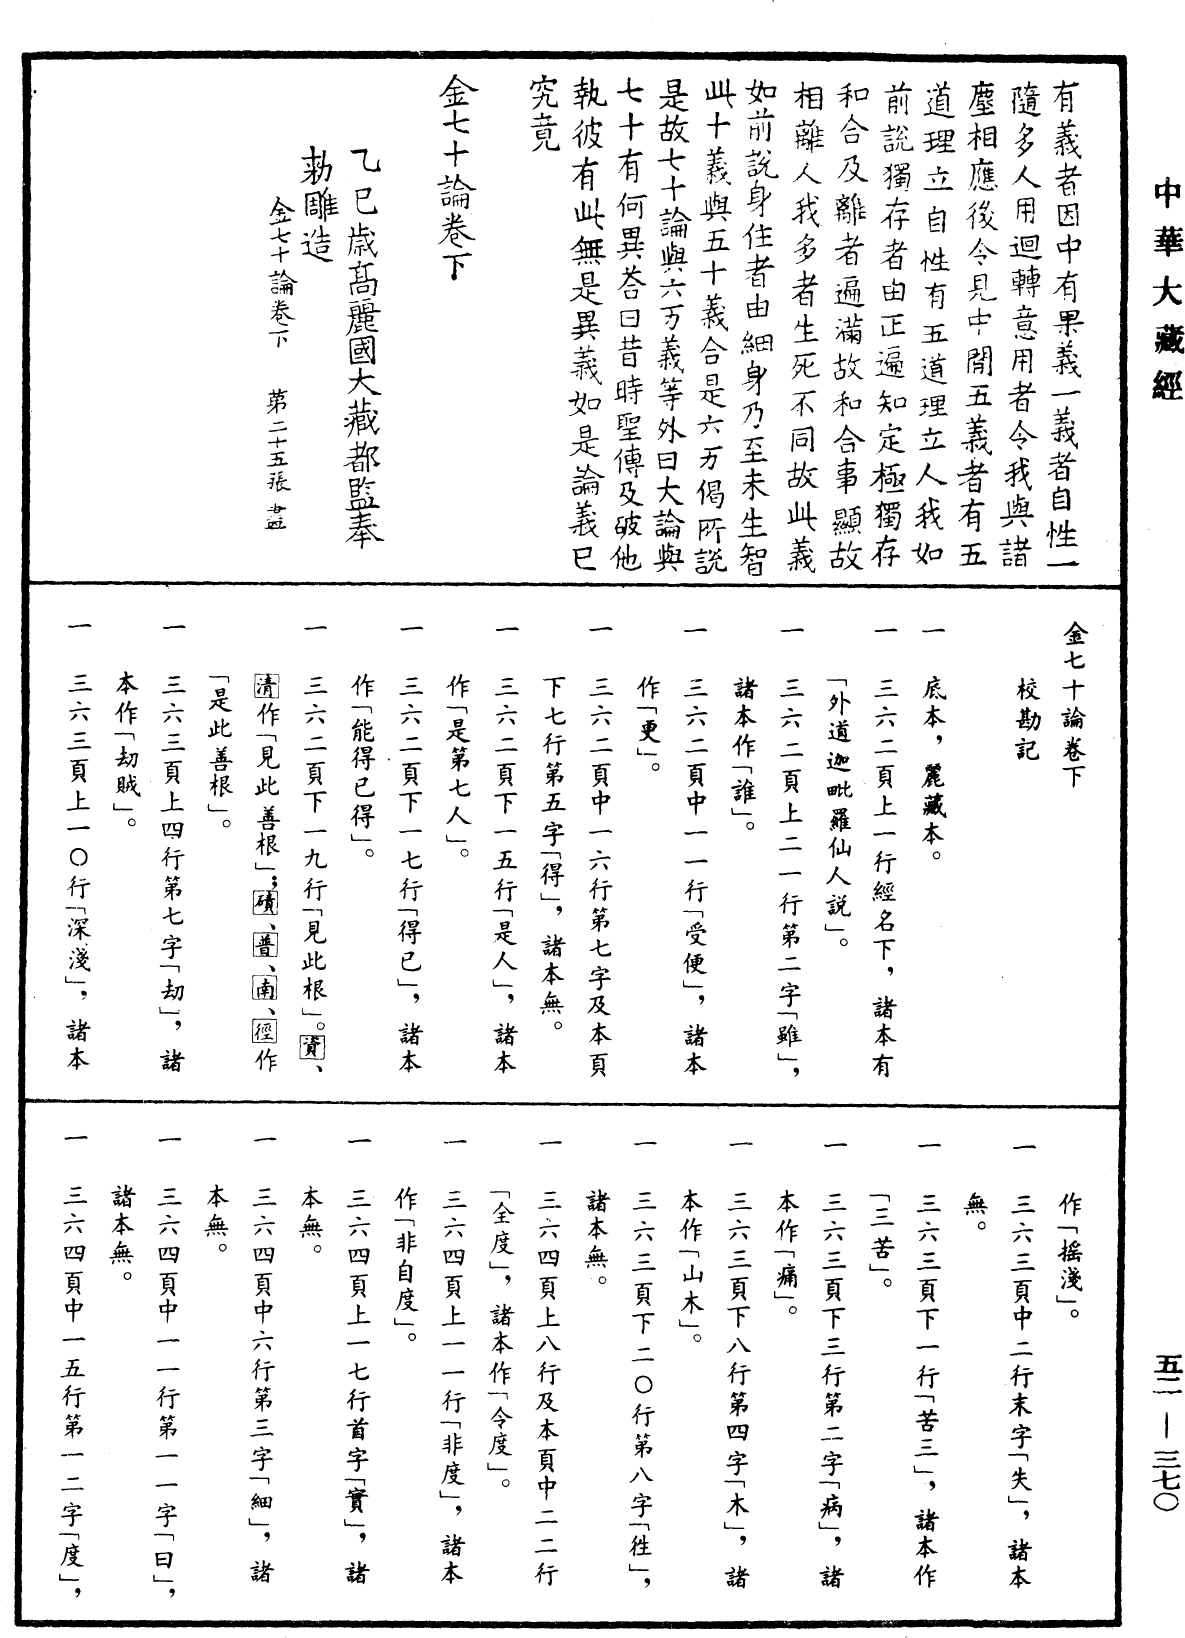 中華大藏經
有義者因中有果義一義者自性一
隨多人用迴轉意用者令我與諸
塵相應後令見中間五義者有五
道理立自性有五道理立人我如
前說獨存者由正遍知定極獨存
和合及離者遍滿故和合事顯故
相離人我多者生死不同故此義
如前說身住者由細身乃至未生智
此十義與五十義合是六万偈所說
是故七十論與六万義等外曰大論與
七十有何異荅曰昔時聖傳及破他
執彼有此無是異義如是論義已
究竟
金七十論卷下
乙巳歲高麗國大藏都監奉
勅雕造
金七十論卷下 第二十五張 盡
金七十論卷下
校勘記
一 底本，麗藏本。
一 三六二頁上一行經名下，諸本有
「外道迦毗羅仙人說」。
一 三六二頁上二一行第二字「雖」，
諸本作「誰」。
一 三六二頁中一一行「受便」，諸本
作「更」。
一 三六二頁中一六行第七字及本頁
下七行第五字「得」，諸本無。
一 三六二頁下一五行「是人」，諸本
作「是第七人」。
一 三六二頁下一七行「得已」，諸本
作「能得已得」。
一 三六二頁下一九行「見此根」。資、
清作「見此善根」；磧、普、南、徑作
「是此善根」。
一 三六三頁上四行第七字「劫」，諸
本作「劫賊」。
一 三六三頁上一〇行「深淺」，諸本
作「搖淺」。
一 三六三頁中二行末字「失」，諸本
無。
一 三六三頁下一行「苦三」，諸本作
「三苦」。
一 三六三頁下三行第二字「病」，諸
本作「痛」。
一 三六三頁下八行第四字「木」，諸
本作「山木」。
一 三六三頁下二〇行第八字「徃」，
諸本無。
一 三六四頁上八行及本頁中二二行
「全度」，諸本作「令度」。
一 三六四頁上一一行「非度」，諸本
作「非自度」。
一 三六四頁上一七行首字「實」，諸
本無。
一 三六四頁中六行第三字「細」，諸
本無。
一 三六四頁中一一行第一一字「曰」，
諸本無。
一 三六四頁中一五行第一二字「度」，
五二—三七〇